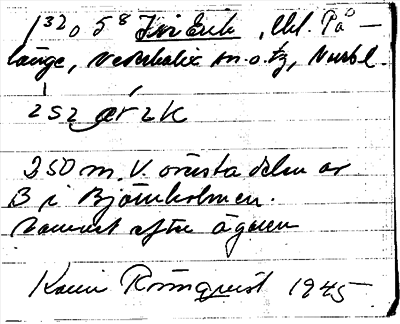 132o 58 Jvi Erik, Chl. På-
länge, Nederkalix sn. o. tg, Nvrbl.
252 är 2k
250 m. V. översta delen av
B i Björnholmen.
Namnet efter ägaren
Karin Rönnqvist 1945